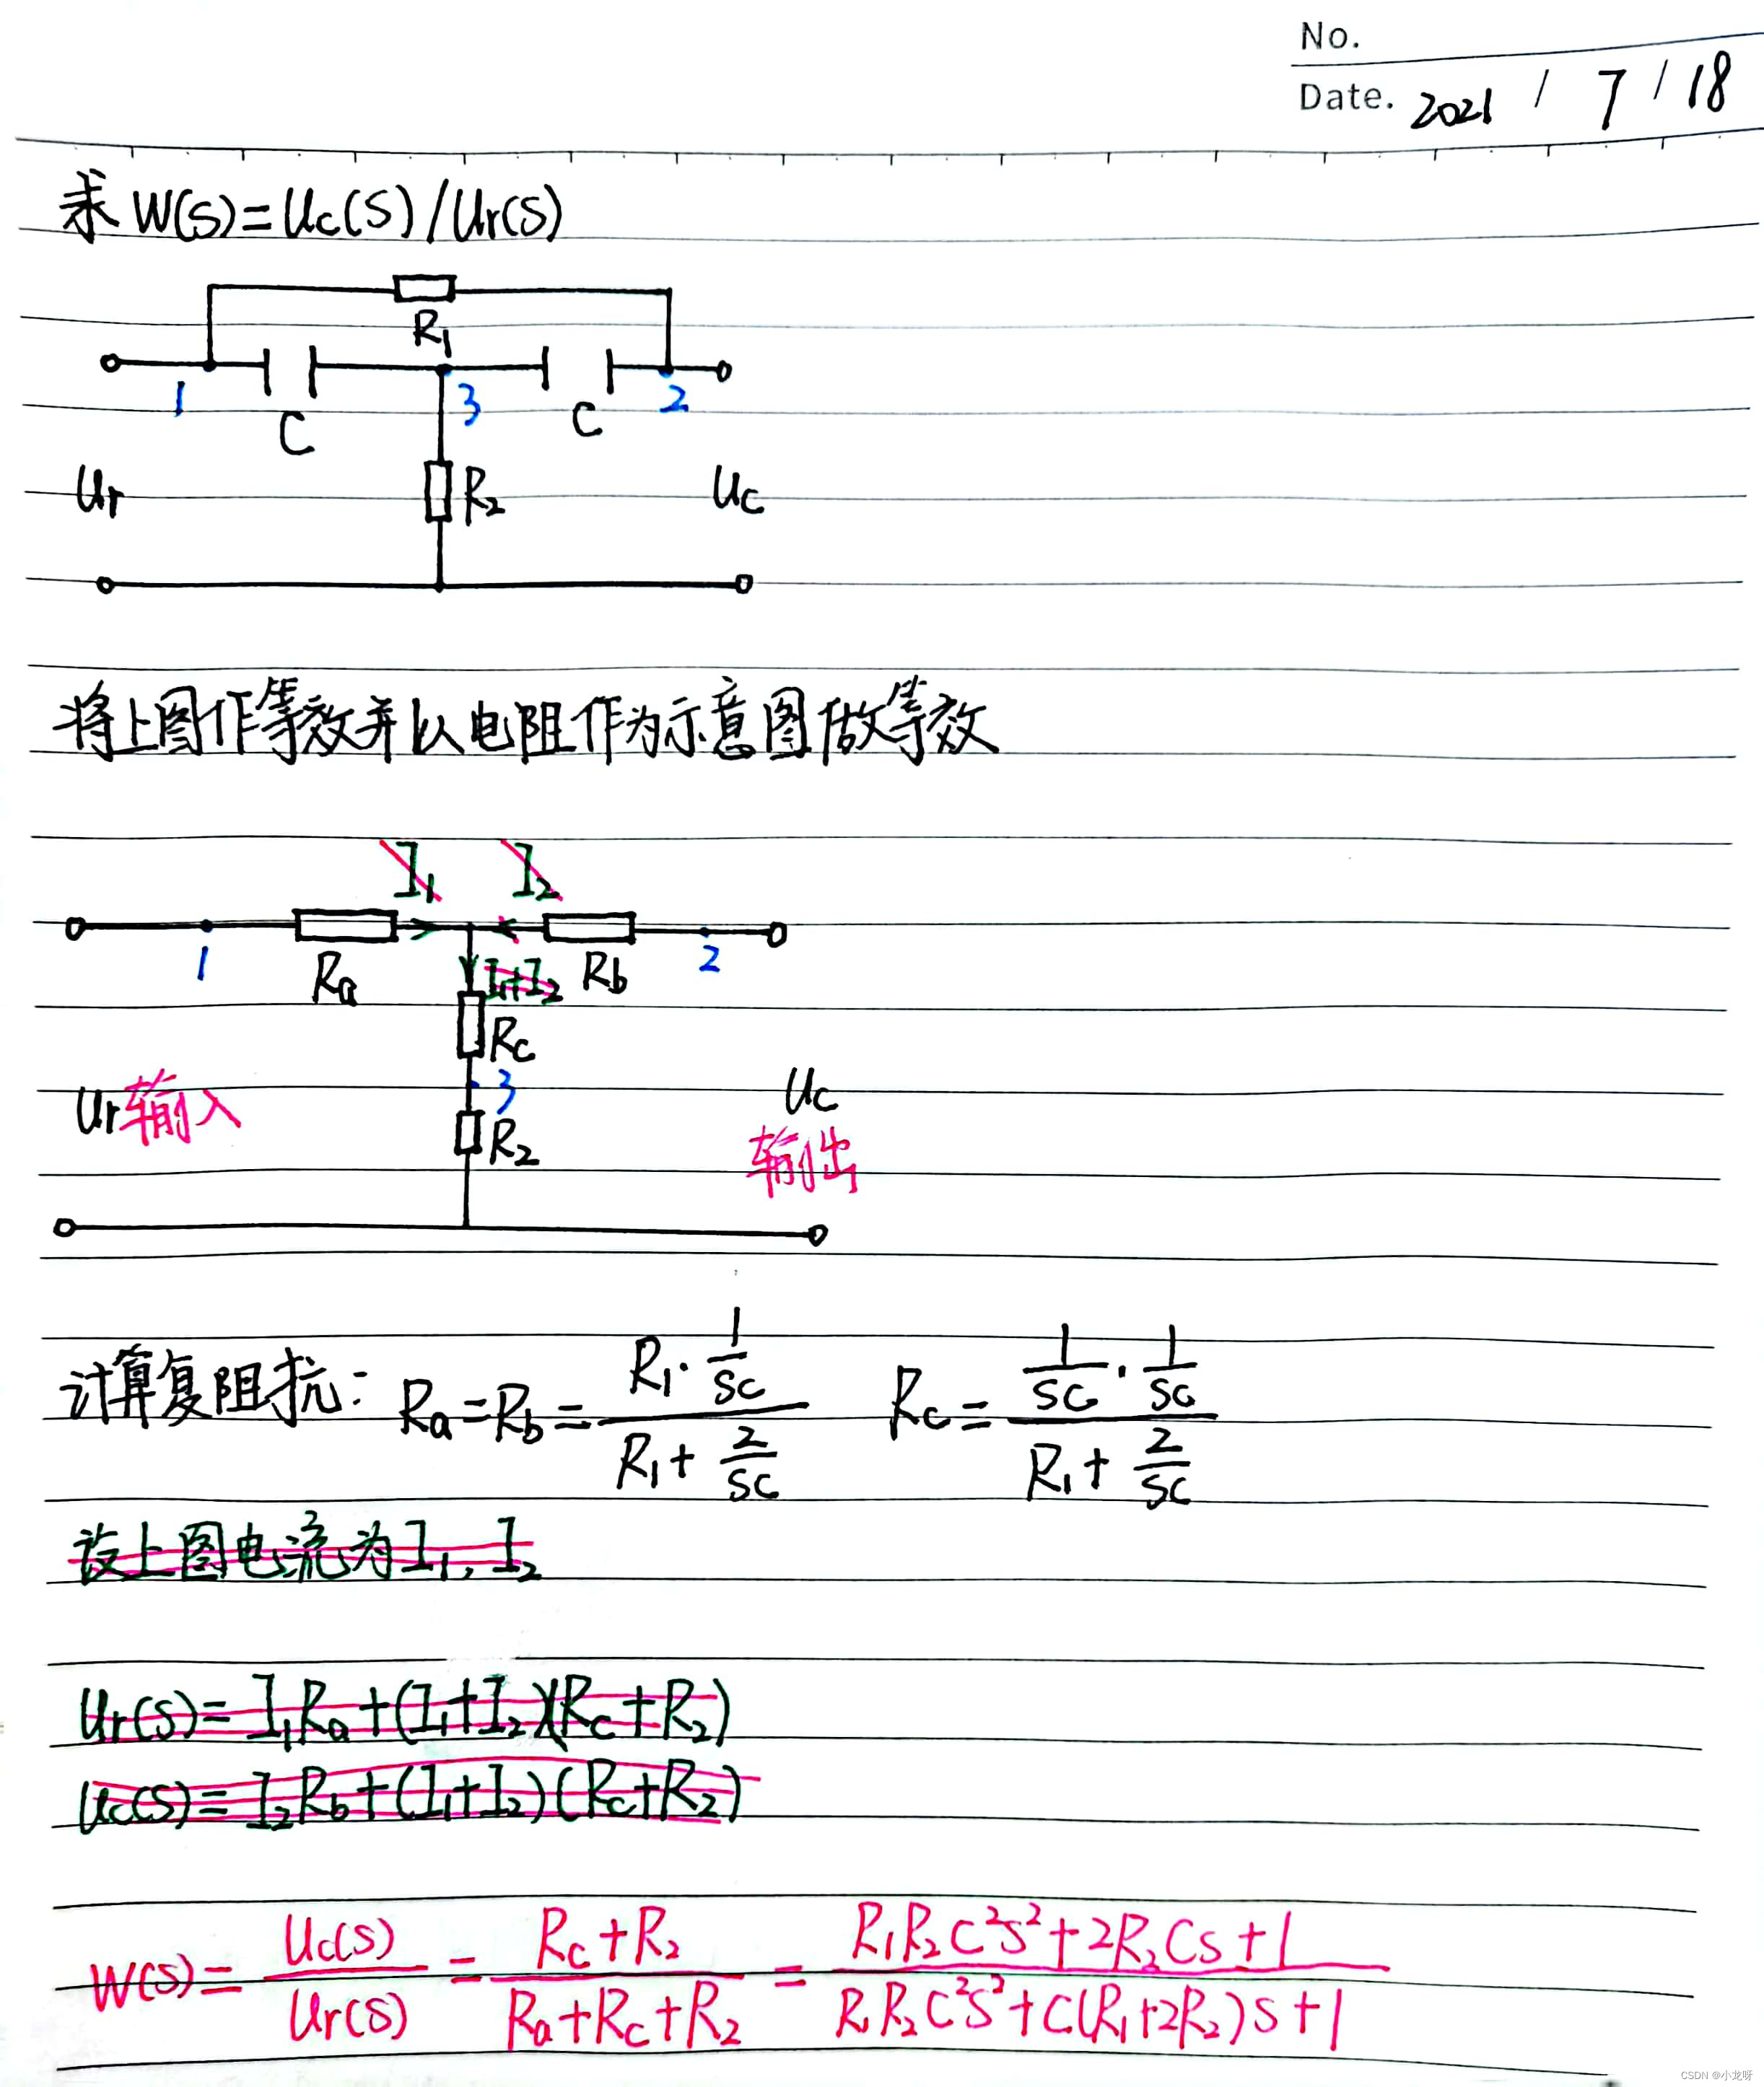 No.
Date. 2021 / 7 / 18
求 W(s)=Uc(s)/Ur(s)
R1
1 3 2
C C
Ur R2 Uc
将上图作等效并以电阻作为示意图做等效
I1 I2
1 Ra I1+I2 Rb 2
Rc
Ur输入 3 Uc
R2 输出
计算复阻抗: Ra=Rb= (R1·1/sc)/(R1+2/sc) Rc= (1/sc·1/sc)/(R1+2/sc)
设上图电流为I1, I2
Ur(s)=I1Ra+(I1+I2)(Rc+R2)
Uc(s)=I2Rb+(I1+I2)(Rc+R2)
W(s)= Uc(s)/Ur(s) = (Rc+R2)/(Ra+Rc+R2) = (R1R2C²s²+2R2Cs+1)/(R1R2C²s²+C(R1+2R2)s+1)
CSDN @小龙呀